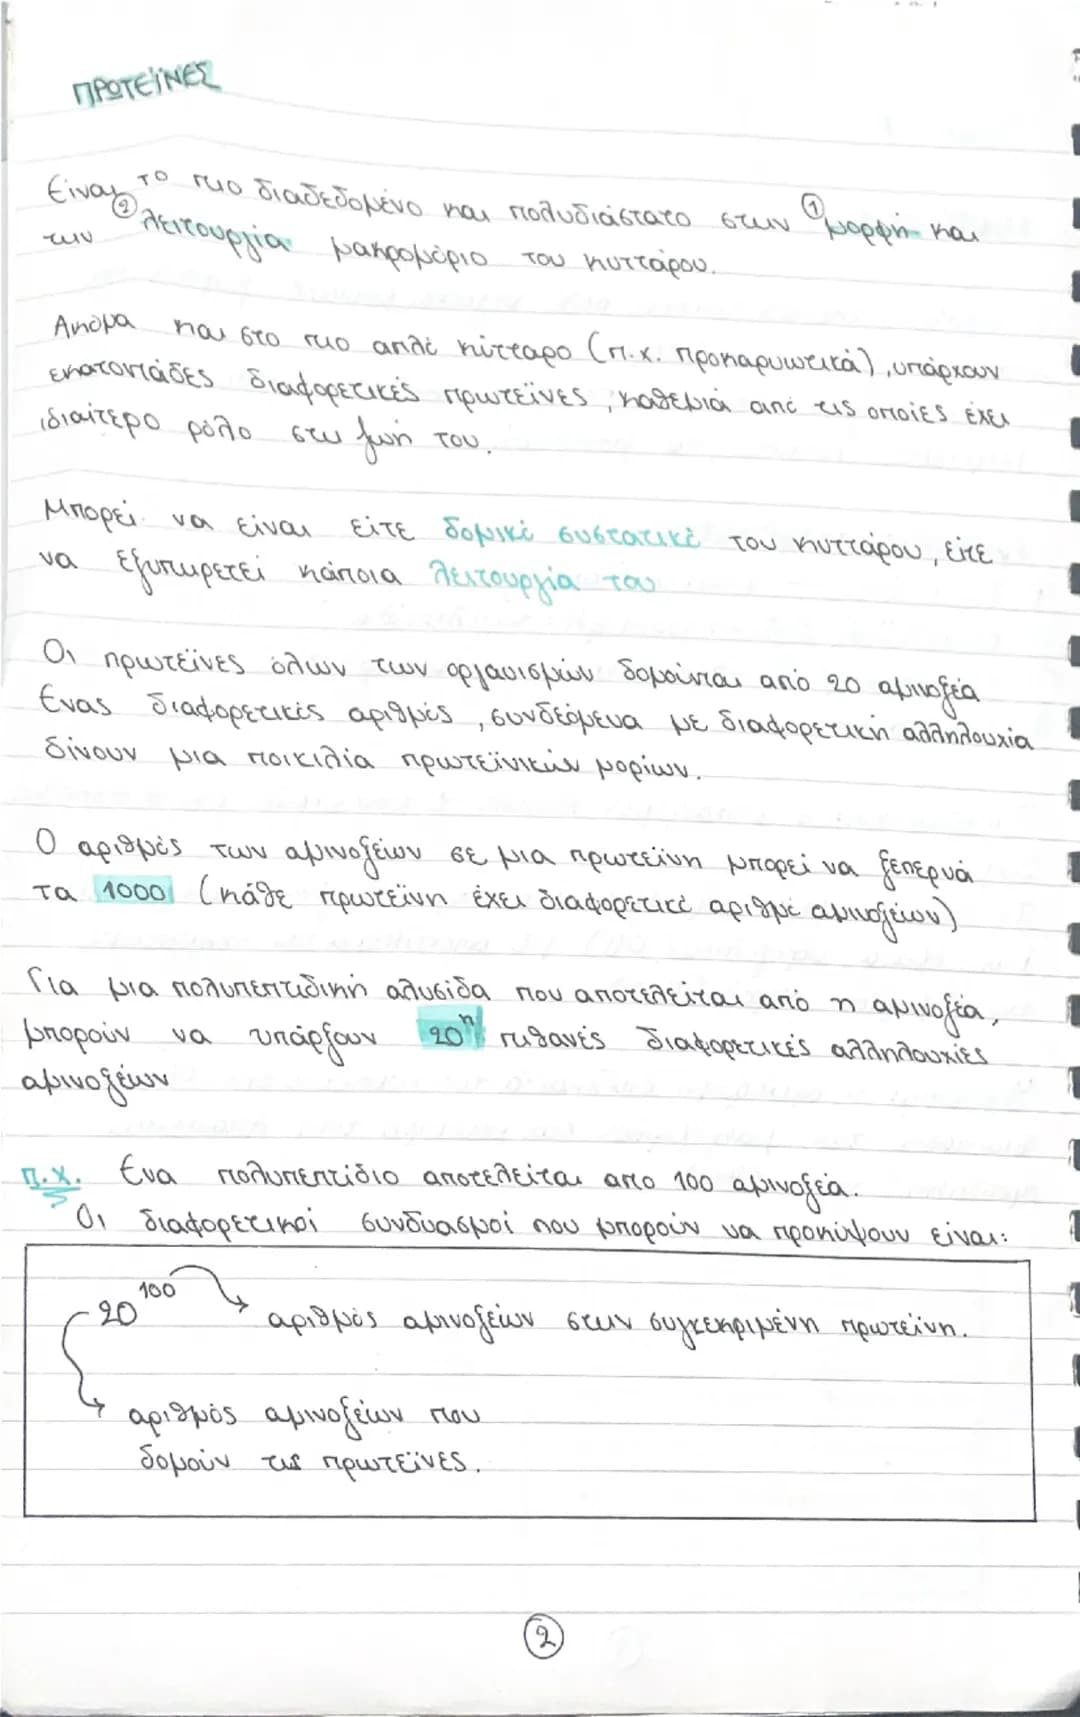 ΠΡΩΤΕΪΝΕΣ
Είναι το πιο διαδεδομένο και πολυδιάστατο στην ① μορφή και
την ② λειτουργία μακρομόριο του κυττάρου.
Ακόμα και στο πιο απλό κύτταρο (π.χ. προκαρυωτικά), υπάρχουν
εκατοντάδες διαφορετικές πρωτεΐνες, καθεμιά από τις οποίες έχει
ιδιαίτερο ρόλο στη ζωή του.
Μπορεί να είναι είτε δομικό συστατικό του κυττάρου, είτε
να εξυπηρετεί κάποια λειτουργία του
Οι πρωτεΐνες όλων των οργανισμών δομούνται από 20 αμινοξέα
Ένας διαφορετικός αριθμός, συνδεόμενα με διαφορετική αλληλουχία
δίνουν μια ποικιλία πρωτεϊνικών μορίων.
Ο αριθμός των αμινοξέων σε μια πρωτεΐνη μπορεί να ξεπερνά
τα 1000 (κάθε πρωτεΐνη έχει διαφορετικό αριθμό αμινοξέων)
Για μια πολυπεπτιδική αλυσίδα που αποτελείται από n αμινοξέα,
μπορούν να υπάρξουν 20ⁿ πιθανές διαφορετικές αλληλουχίες
αμινοξέων
π.χ. Ένα πολυπεπτίδιο αποτελείται απο 100 αμινοξέα.
Οι διαφορετικοί συνδυασμοί που μπορούν να προκύψουν είναι:
20¹⁰⁰ αριθμός αμινοξέων στην συγκεκριμένη πρωτεΐνη.
αριθμός αμινοξέων που
δομούν τις πρωτεΐνες.
②